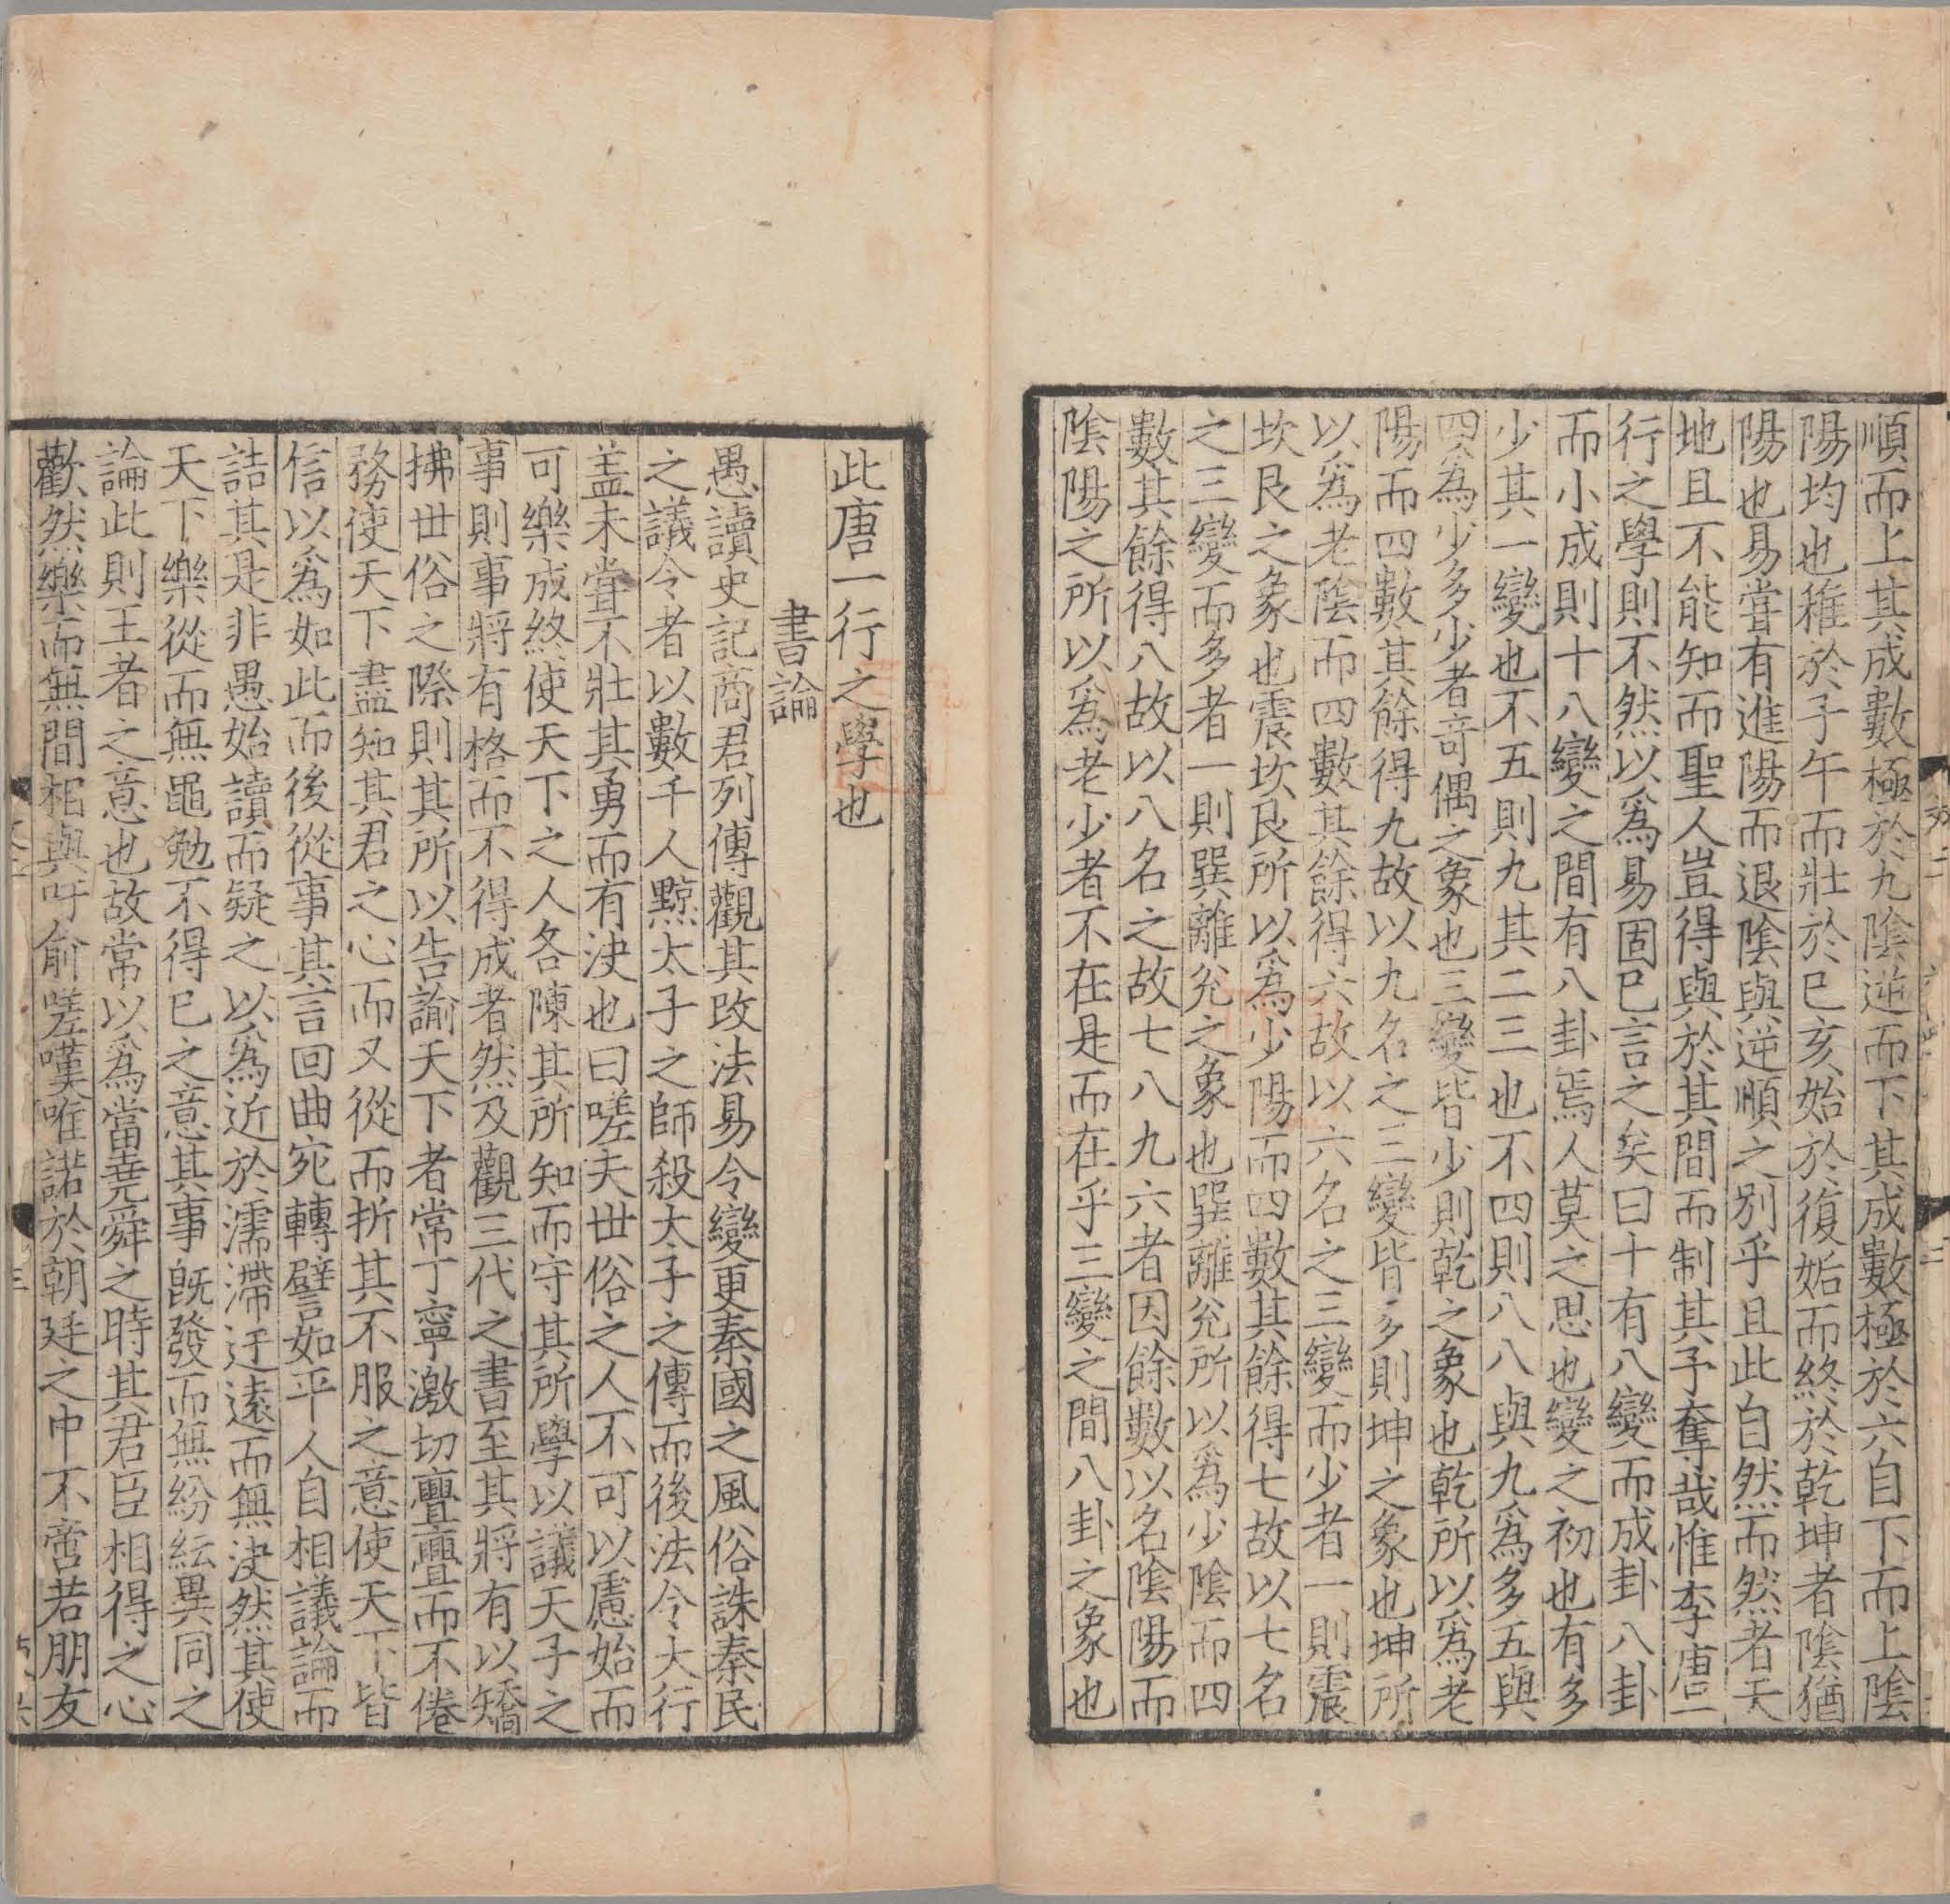 順而上其成數極於九陰逆而下其成數極於六自下而上陰
陽均也稚於子午而壯於巳亥始於復姤而終於乾坤者陰猶
陽也易嘗有進陽而退陰與逆順之别乎且此自然而然者天
地且不能知而聖人豈得與於其間而制其予奪哉惟李唐一
行之學則不然以爲易固已言之矣曰十有八變而成卦八卦
而小成則十八變之間有八卦焉人莫之思也變之初也有多
少其一變也不五則九其二三也不四則八八與九爲多五與
四爲少多少者奇偶之象也三變皆少則乾之象也乾所以爲老
陽而四數其餘得九故以九名之三變皆多則坤之象也坤所
以爲老陰而四數其餘得六故以六名之三變而少者一則震
坎艮之象也震坎艮所以爲少陽而四數其餘得七故以七名
之三變而多者一則巽離兊之象也巽離兊所以爲少陰而四
數其餘得八故以八名之故七八九六者因餘數以名陰陽而
陰陽之所以爲老少者不在是而在乎三變之間八卦之象也
此唐一行之學也
書論
愚讀史記商君列傳觀其改法易令變更秦國之風俗誅秦民
之議令者以數千人黥太子之師殺太子之傳而後法令大行
盖未嘗不壯其勇而有決也曰嗟夫世俗之人不可以慮始而
可樂成終使天下之人各陳其所知而守其所學以議天子之
事則事將有格而不得成者然及觀三代之書至其將有以矯
拂世俗之際則其所以告諭天下者常丁寧激切亹亹而不倦
務使天下盡知其君之心而又從而折其不服之意使天下皆
信以爲如此而後從事其言回曲宛轉譬如平人自相議論而
詰其是非愚始讀而疑之以爲近於濡滯迂遠而無決然其使
天下樂從而無黽勉不得已之意其事旣發而無紛紜異同之
論此則王者之意也故常以爲當堯舜之時其君臣相得之心
歡然樂而無間相與吁俞嗟嘆唯諾於朝廷之中不啻若朋友